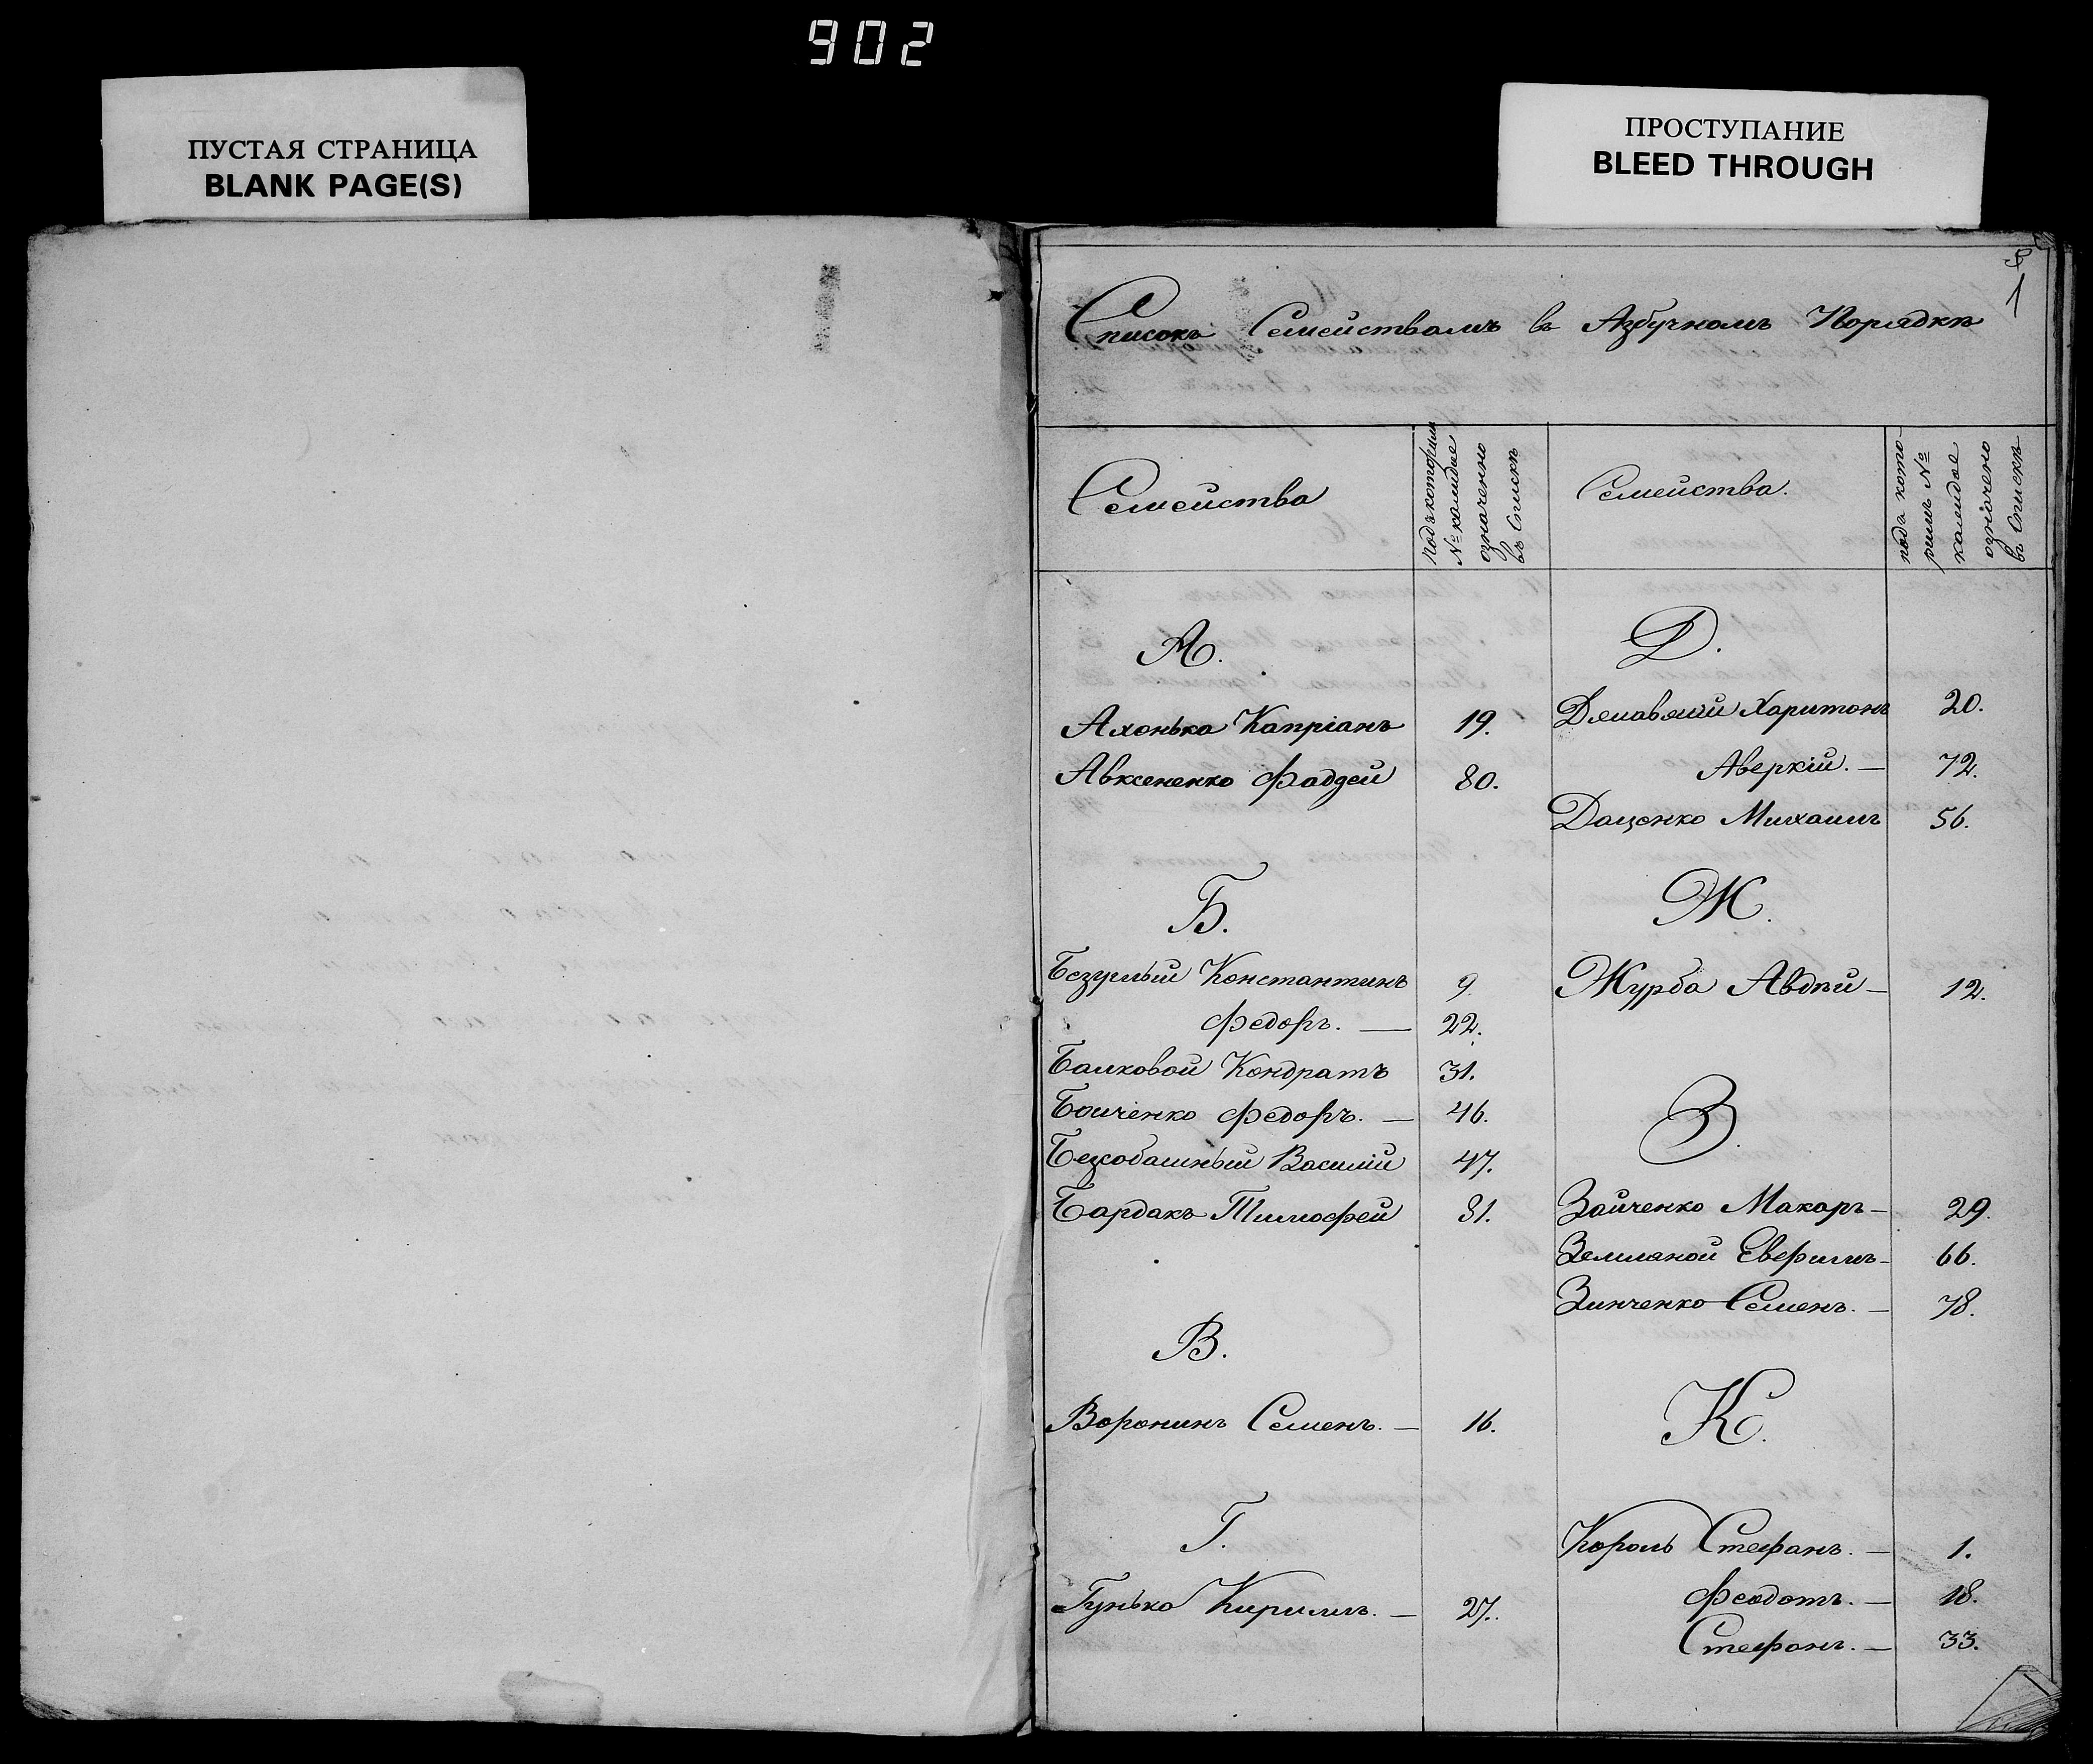 902
ПУСТАЯ СТРАНИЦА
BLANK PAGE(S)
ПРОСТУПАНИЕ
BLEED THROUGH
1
Списокъ Семействамъ въ Азбучномъ Порядкѣ
Семейства
подъ которым
№ каждое
означенно
въ Спискѣ
Семейства.
подъ кото-
рымъ №
каждое
означено
въ Спискѣ
А.
Ахонька Капріанъ 19.
Авксененко Фаддей 80.
Б.
Безуглый Константинъ 9
Федоръ. — 22.
Балковой Кондратъ 31.
Бойченко Федоръ. — 46.
Василій 47.
Бардакъ Тимофей 81.
В.
Воронинъ Семенъ. — 16.
Г.
Гунько Кирилъ. — 27.
Д.
Харитонъ 20.
Аверкій. — 72.
Даценко Михаилъ 56.
Ж.
Журба Авдѣй — 12.
З.
Зайченко Макаръ — 29.
Земляной 66.
Зинченко Семенъ. — 78.
К.
Король Стефанъ. — 1.
Феодотъ. — 18.
Стефанъ. — 33.